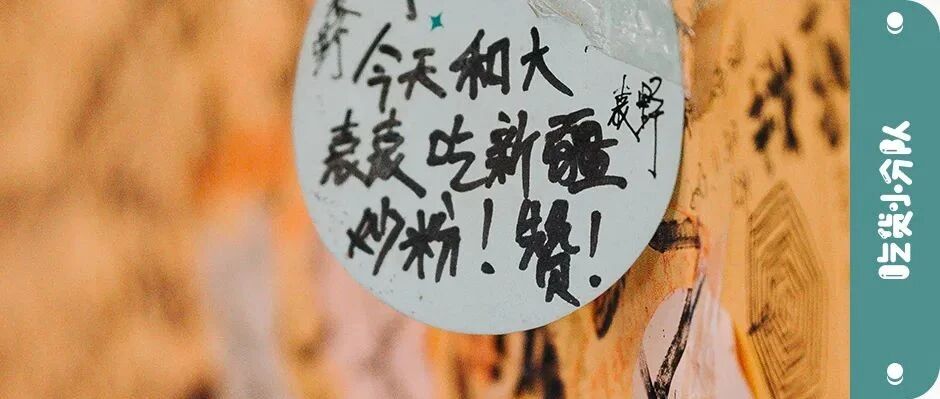 今天和大
袁袁吃新疆
炒粉！赞！
吃货小分队